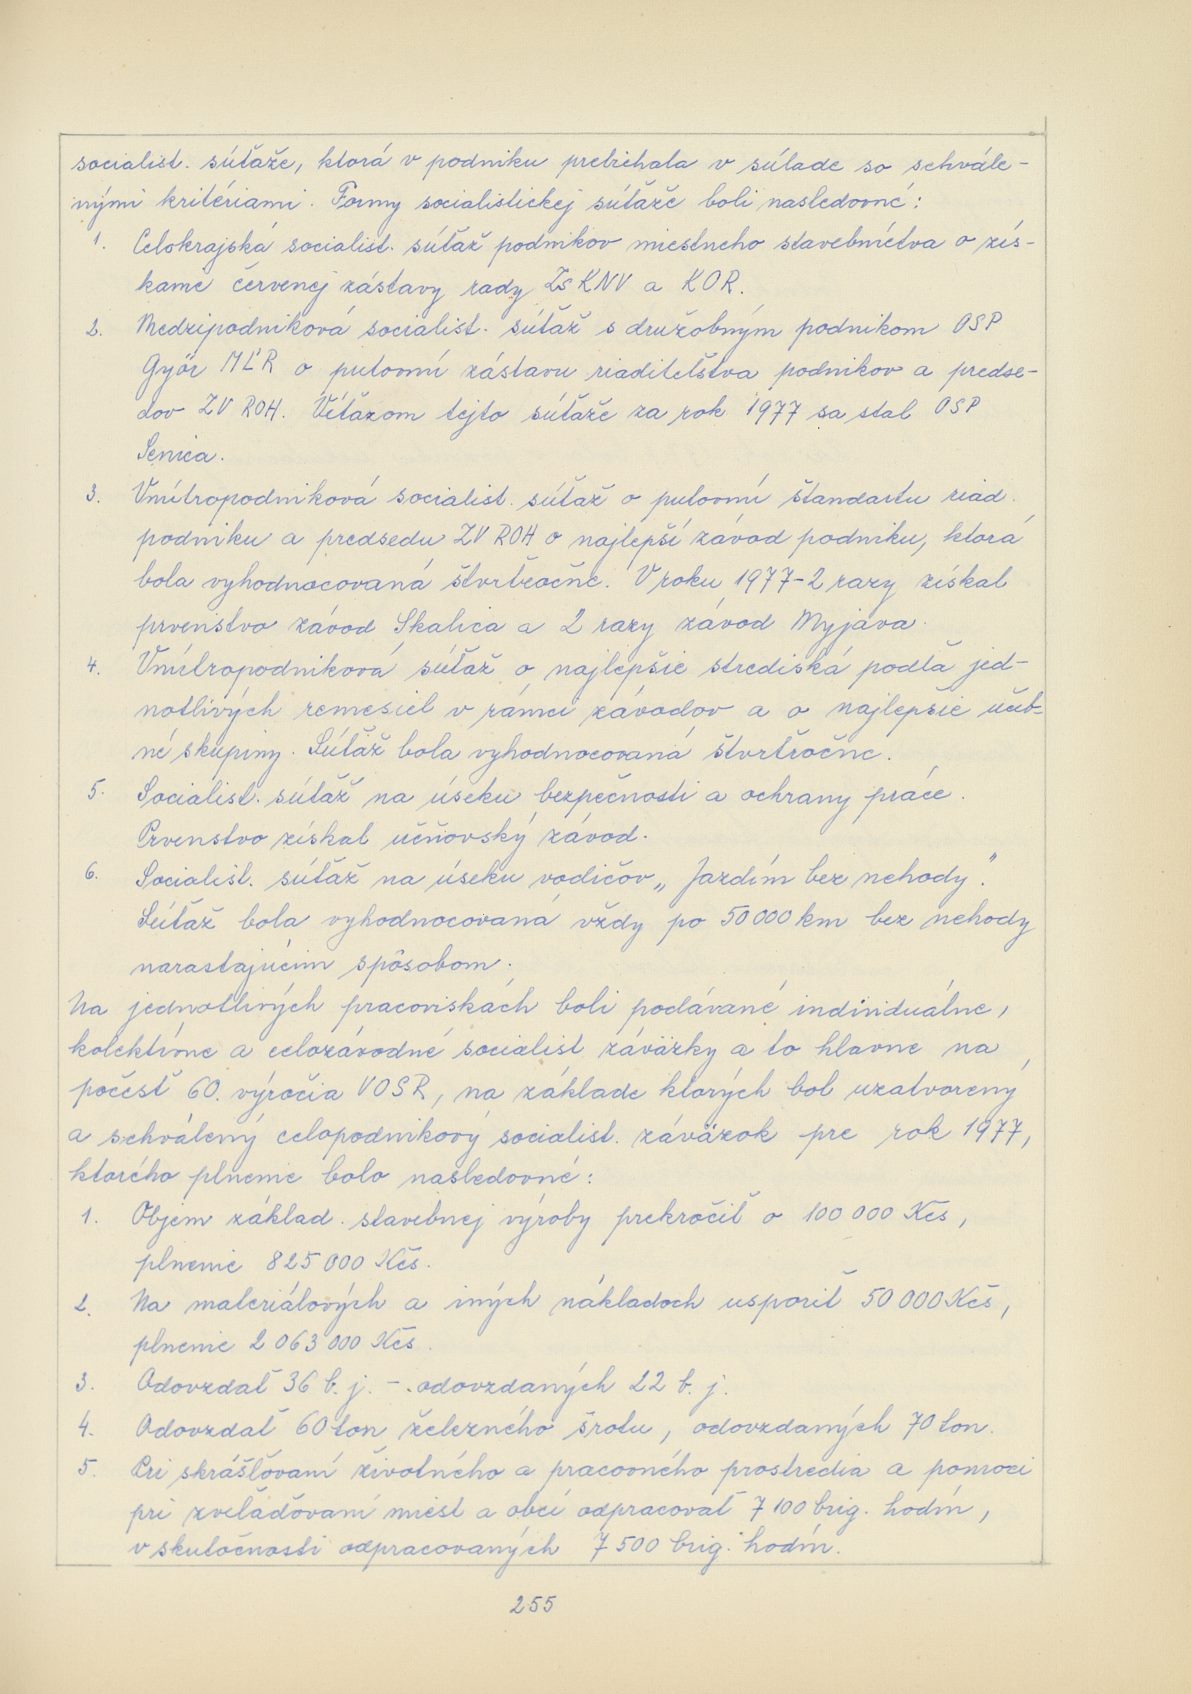 socialist. súťaže, ktorá v podniku prebiehala v súlade so schvále-
nými kritériami. Formy socialistickej súťaže boli nasledovné:
1. Celokrajská socialist. súťaž podnikov miestneho stavebníctva o zís-
kanie červenej zástavy rady ZsKNV a KOR.
2. Medzipodniková socialist. súťaž s družobným podnikom OSP
Győr MĽR o putovnú zástavu riaditeľstva podnikov a predse-
dov ZV ROH. Víťazom tejto súťaže za rok 1977 sa stal OSP
Senica.
3. Vnútropodniková socialist. súťaž o putovnú štandartu riad.
podniku a predsedu ZV ROH o najlepší závod podniku, ktorá
bola vyhodnocovaná štvrťročne. V roku 1977-2 razy získal
prvenstvo závod Skalica a 2 razy závod Myjava.
4. Vnútropodniková súťaž o najlepšie strediská podľa jed-
notlivých remesiel v rámci závodov a o najlepšie učeb-
né skupiny. Súťaž bola vyhodnocovaná štvrťročne.
5. Socialist. súťaž na úseku bezpečnosti a ochrany práce.
Prvenstvo získal učňovský závod.
6. Socialist. súťaž na úseku vodičov „Jazdím bez nehody".
Súťaž bola vyhodnocovaná vždy po 50 000 km bez nehody
narastajúcim spôsobom.
Na jednotlivých pracoviskách boli podávané individuálne,
kolektívne a celozávodné socialist záväzky a to hlavne na
počesť 60. výročia VOSR, na základe ktorých bol uzatvorený
a schválený celopodnikový socialist. záväzok pre rok 1977,
ktorého plnenie bolo nasledovné:
1. Objem základ. stavebnej výroby prekročiť o 100 000 Kčs,
plnenie 825 000 Kčs.
2. Na materiálových a iných nákladoch usporiť 50 000 Kčs,
plnenie 2 063 000 Kčs.
3. Odovzdať 36 b. j. - odovzdaných 22 b. j.
4. Odovzdať 60 ton železného šrotu, odovzdaných 70 ton.
5. Pri skrášľovaní životného a pracovného prostredia a pomoci
pri zveľaďovaní miest a obcí odpracovať 7 100 brig. hodín,
v skutočnosti odpracovaných 7 500 brig. hodín.
255